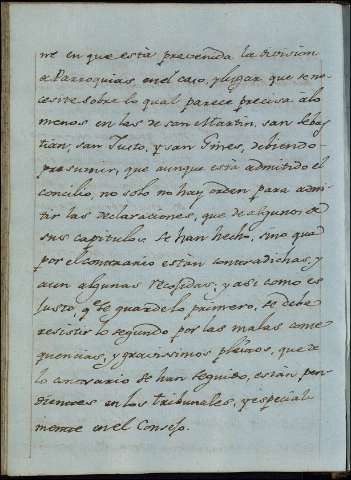 ne en que està prevenida la division
a Parroquias, en el caso, y lugar que se ne-
cesite sobre lo qual parece precisa à lo
menos en las de san Martin, san Sebas
tian, san Justo, y san Gines, debiendo
presumir, que aunque està admitido el
concilio, no solo no hay orden para admi
tir las declaraciones, que de algunos de
sus capitulos se han hecho, sino que
por el contrario estàn contradichas, y
aun algunas recogidas, y asi como es
justo, qe. se guarde lo primero, se debe
resistir lo segundo por las malas conse
quencias, y gravissimos pleitos, que de
lo contrario se han seguido, estàn pen
dientes en los tribunales, y especial
mente en el Consejo.